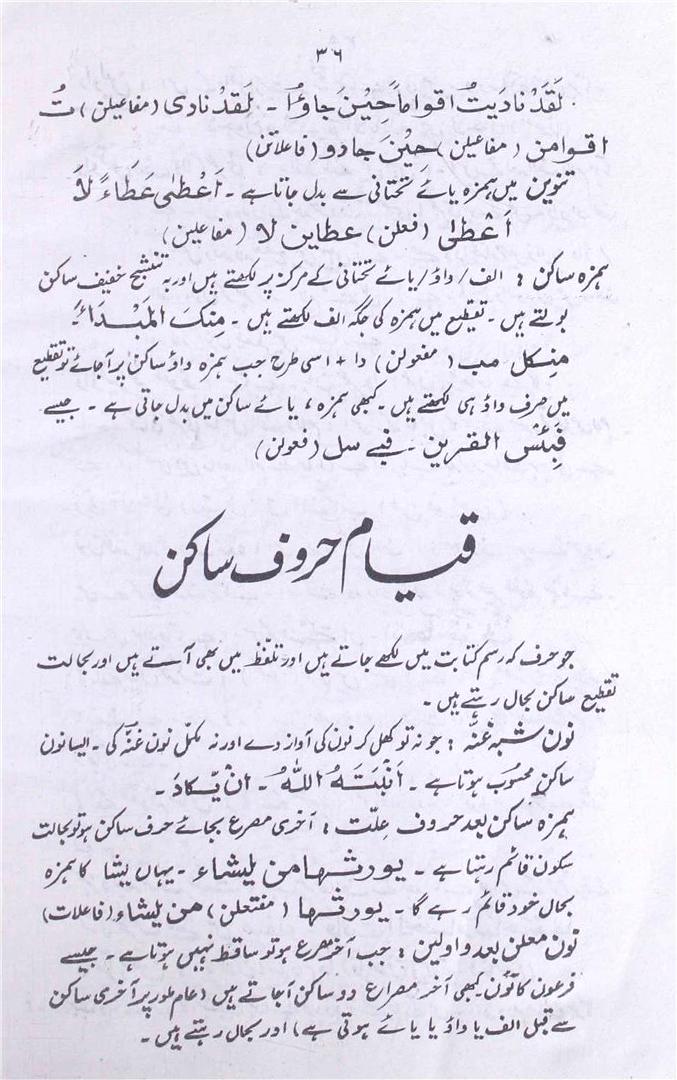 ۳۶
لَقَدْ نادیتُ اقواماً حِیْنَ جاؤا ۔ لَقدْ نادی (مفاعیلن) تُ
اقوامن (مفاعیلن) حیْنَ جادو (فاعلاتن)
تنوین میں ہمزہ یائے تحتانی سے بدل جاتا ہے ۔ اَعْطٰی عَطَاءً لَا
اَعْطٰی (فعلن) عطاین لا (مفاعیلن)
ہمزہ ساکن : الف / واؤ / یائے تحتانی کے مرکز پر لکھتے ہیں اور بہ تنشیح خفیف ساکن
بولتے ہیں ۔ تقطیع میں ہمزہ کی جگہ الف لکھتے ہیں ۔ مِنکَ المَبْدَاءُ ۔
مِنکل مب (مفعولن) دا + اسی طرح جب ہمزہ واؤ ساکن پر آجائے تو تقطیع
میں صرف واؤ ہی لکھتے ہیں ۔ کبھی ہمزہ ، یائے ساکن میں بدل جاتی ہے ۔ جیسے
فَبِئْسَ القرین ۔ فبے سل (فعولن)
قیام حروف ساکن
جو حرف کہ رسم کتابت میں لکھے جاتے ہیں اور تلفظ میں بھی آتے ہیں اور بحالت
تقطیع ساکن بحال رہتے ہیں ۔
نون شبہ غنّہ : جو نہ تو کھل کر نون کی آواز دے اور نہ مکمل نون غنّہ کی ۔ ایسا نون
ساکن محسوب ہوتا ہے ۔ اَنْبَتَہُ اللّٰہُ ۔ انْ یّکادَ ۔
ہمزہ ساکن بعد حروف علّت : آخری مصرع بجائے حرف ساکن ہو تو بحالت
سکون قائم رہتا ہے ۔ یورثھا من یشاء ۔ یہاں یشا کا ہمزہ
بحال خود قائم رہے گا ۔ یورثھا (مفتعلن) من یشاء (فاعلات)
نون معلن بعد و اولین : جب آخر مصرع ہو تو ساقط نہیں ہوتا ہے ۔ جیسے
فرعون کا نون کبھی آخر مصراع دو ساکن آجاتے ہیں (عام طور پر آخری ساکن
سے قبل الف یا واؤ یا یائے ہوتی ہے) اور بحال رہتے ہیں ۔